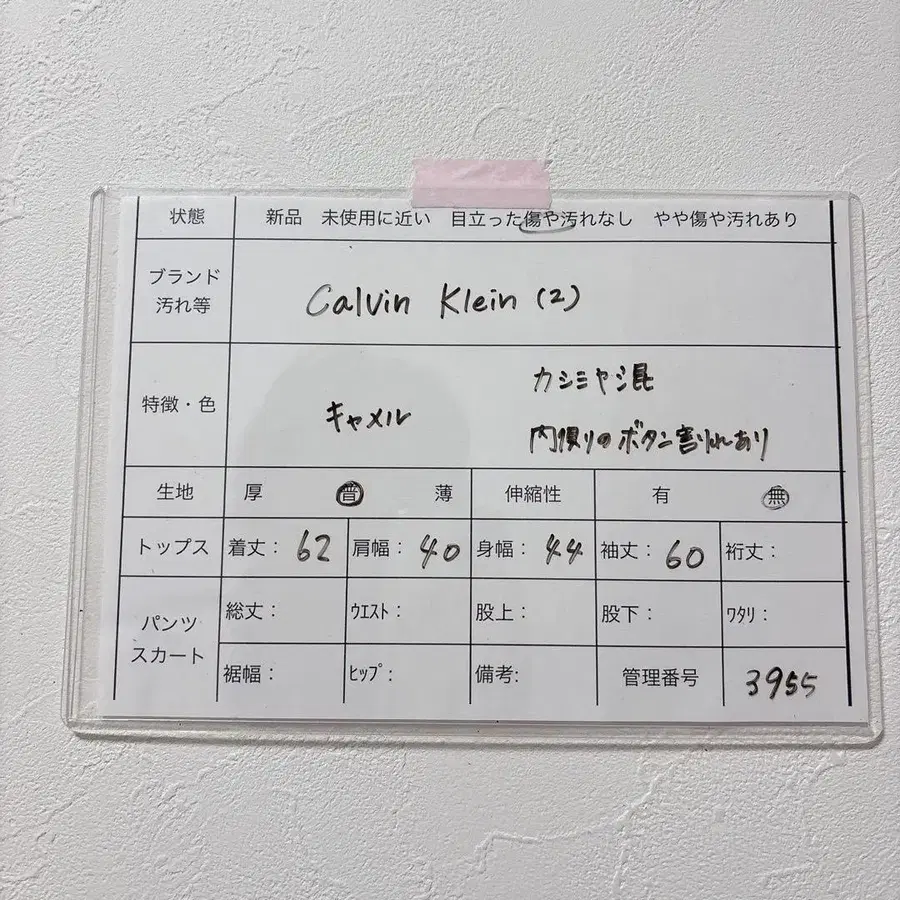 状態 新品 未使用に近い 目立った傷や汚れなし やや傷や汚れあり
ブランド
汚れ等 Calvin Klein (2)
特徴・色 キャメル カシミヤ混
内側りのボタン割れあり
生地 厚 普 薄 伸縮性 有 無
トップス 着丈： 62 肩幅： 40 身幅： 44 袖丈： 60 裄丈：
パンツ
スカート
総丈： ｳｴｽﾄ： 股上： 股下： ﾜﾀﾘ：
裾幅： ﾋｯﾌﾟ： 備考: 管理番号 3955